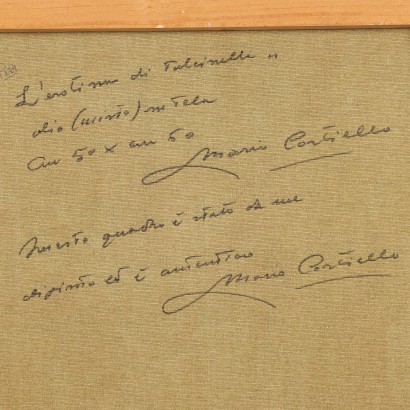 L'erotismo di Pulcinella "
olio (misto) su tela
cm 50 x cm 60
Mario Cortiello
Questo quadro è stato da me
dipinto ed è autentico
Mario Cortiello